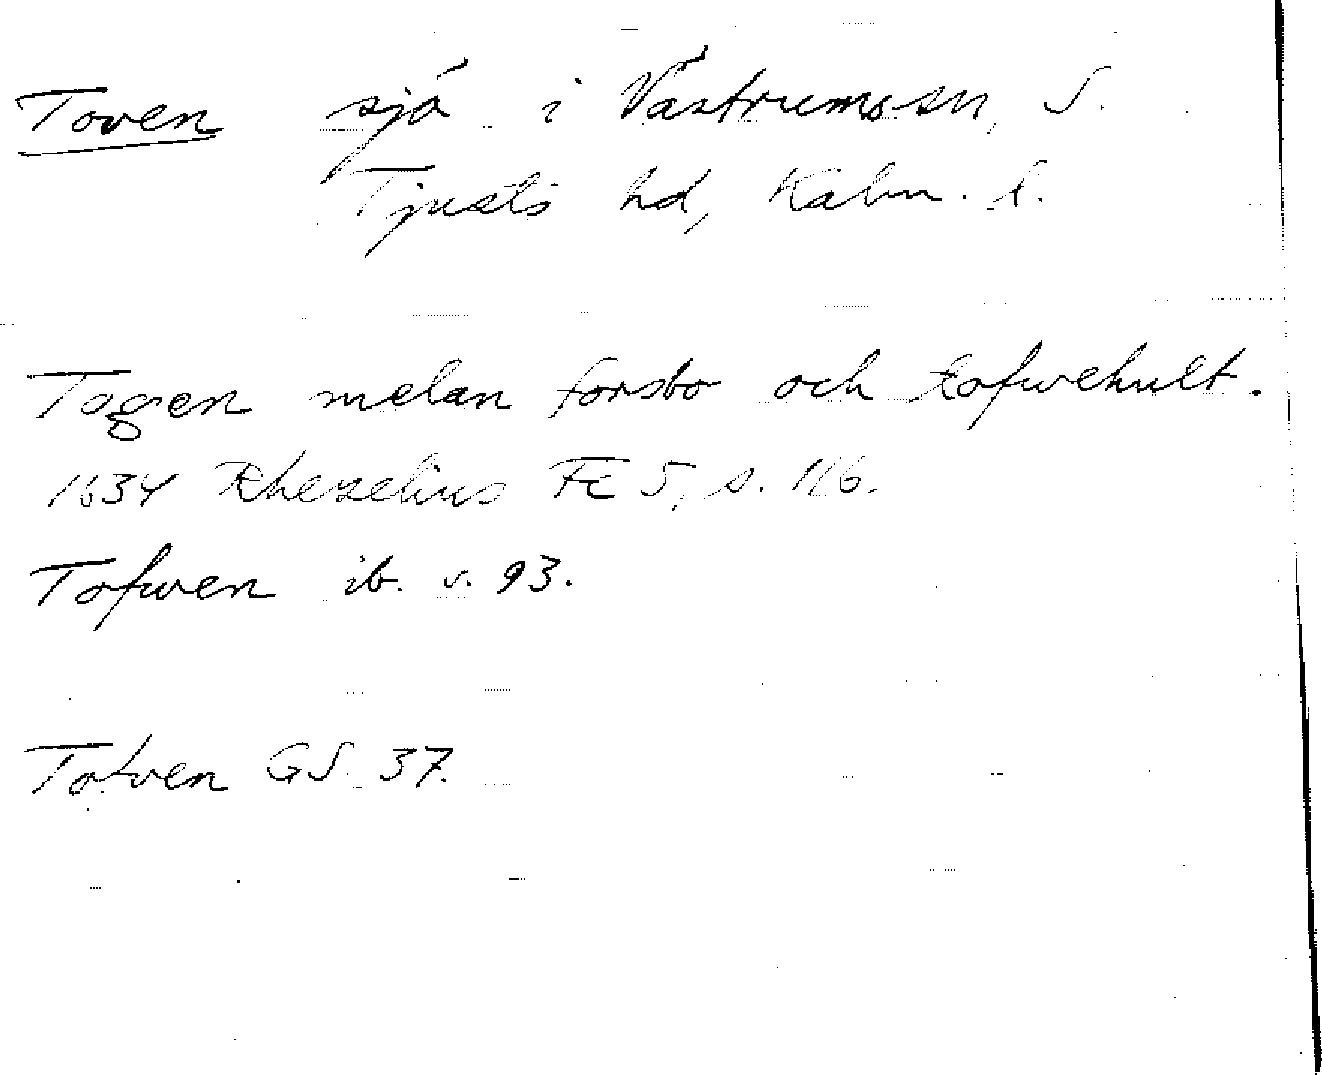 Toven sjö i Västrums sn, S.
Tjusts hd, Kalm. l.
Togen melan forsbo och tofwehult.
1634 Rhezelius Fc 5, s. 116.
Tofwen ib. s. 93.
Totven GS 37.